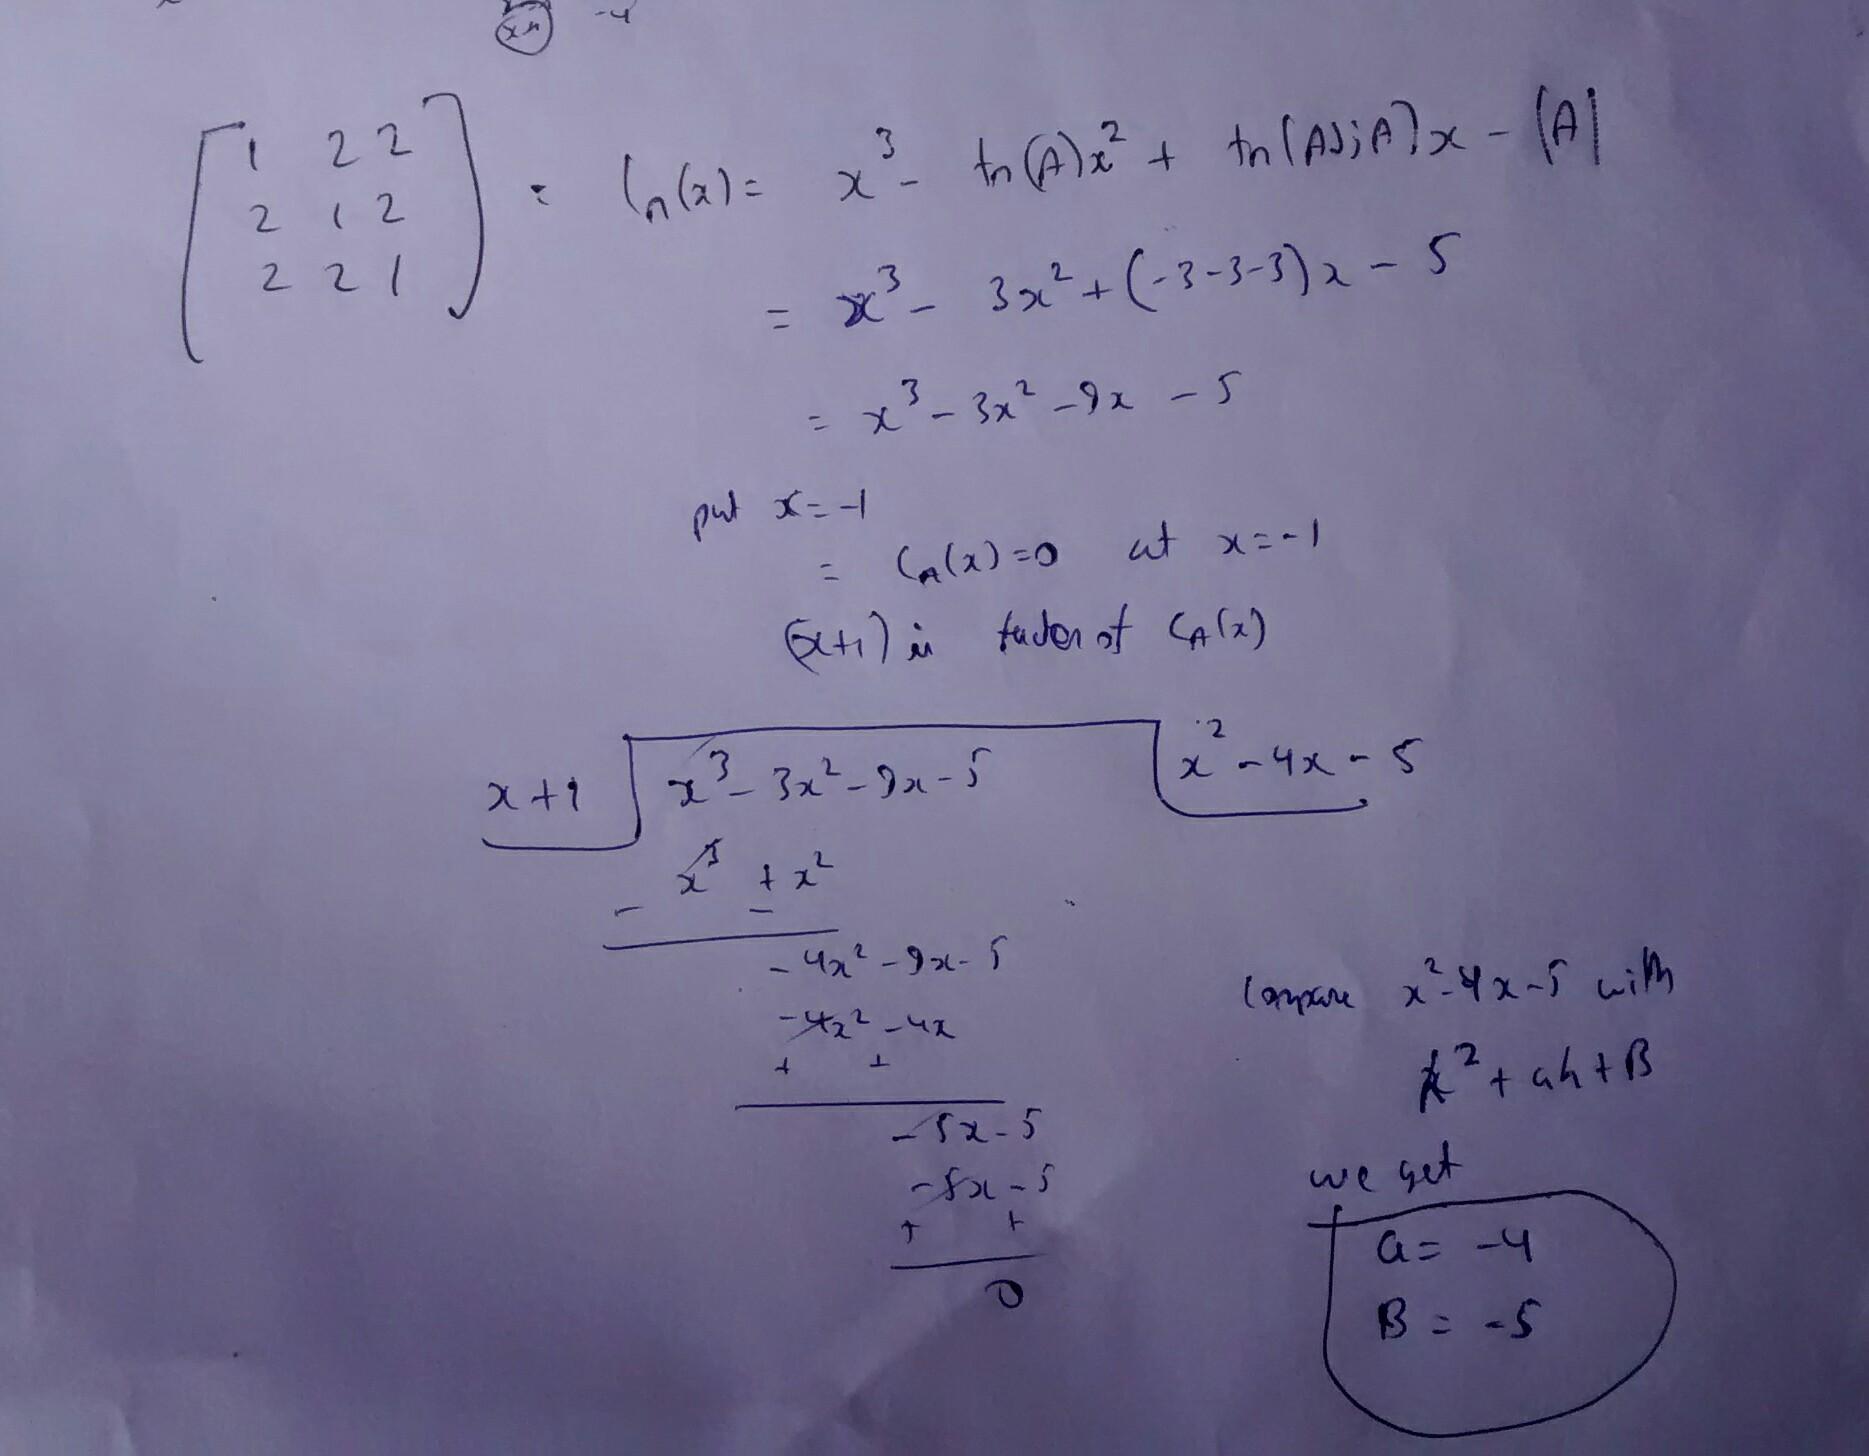 -4
1 2 2
2 1 2
2 2 1
: Cₙ(x) = x³ - tr(A)x² + tr(AdjA)x - |A|
= x³ - 3x² + (-3-3-3)x - 5
= x³ - 3x² - 9x - 5
put x = -1
= C_A(x) = 0 at x = -1
(x+1) is factor of C_A(x)
x+1 x³ - 3x² - 9x - 5 x² - 4x - 5
x³ + x²
- -
-4x² - 9x - 5
-4x² - 4x
+ +
-5x - 5
-5x - 5
+ +
0
Compare x² - 4x - 5 with
x² + ah + B
we get
a = -4
B = -5